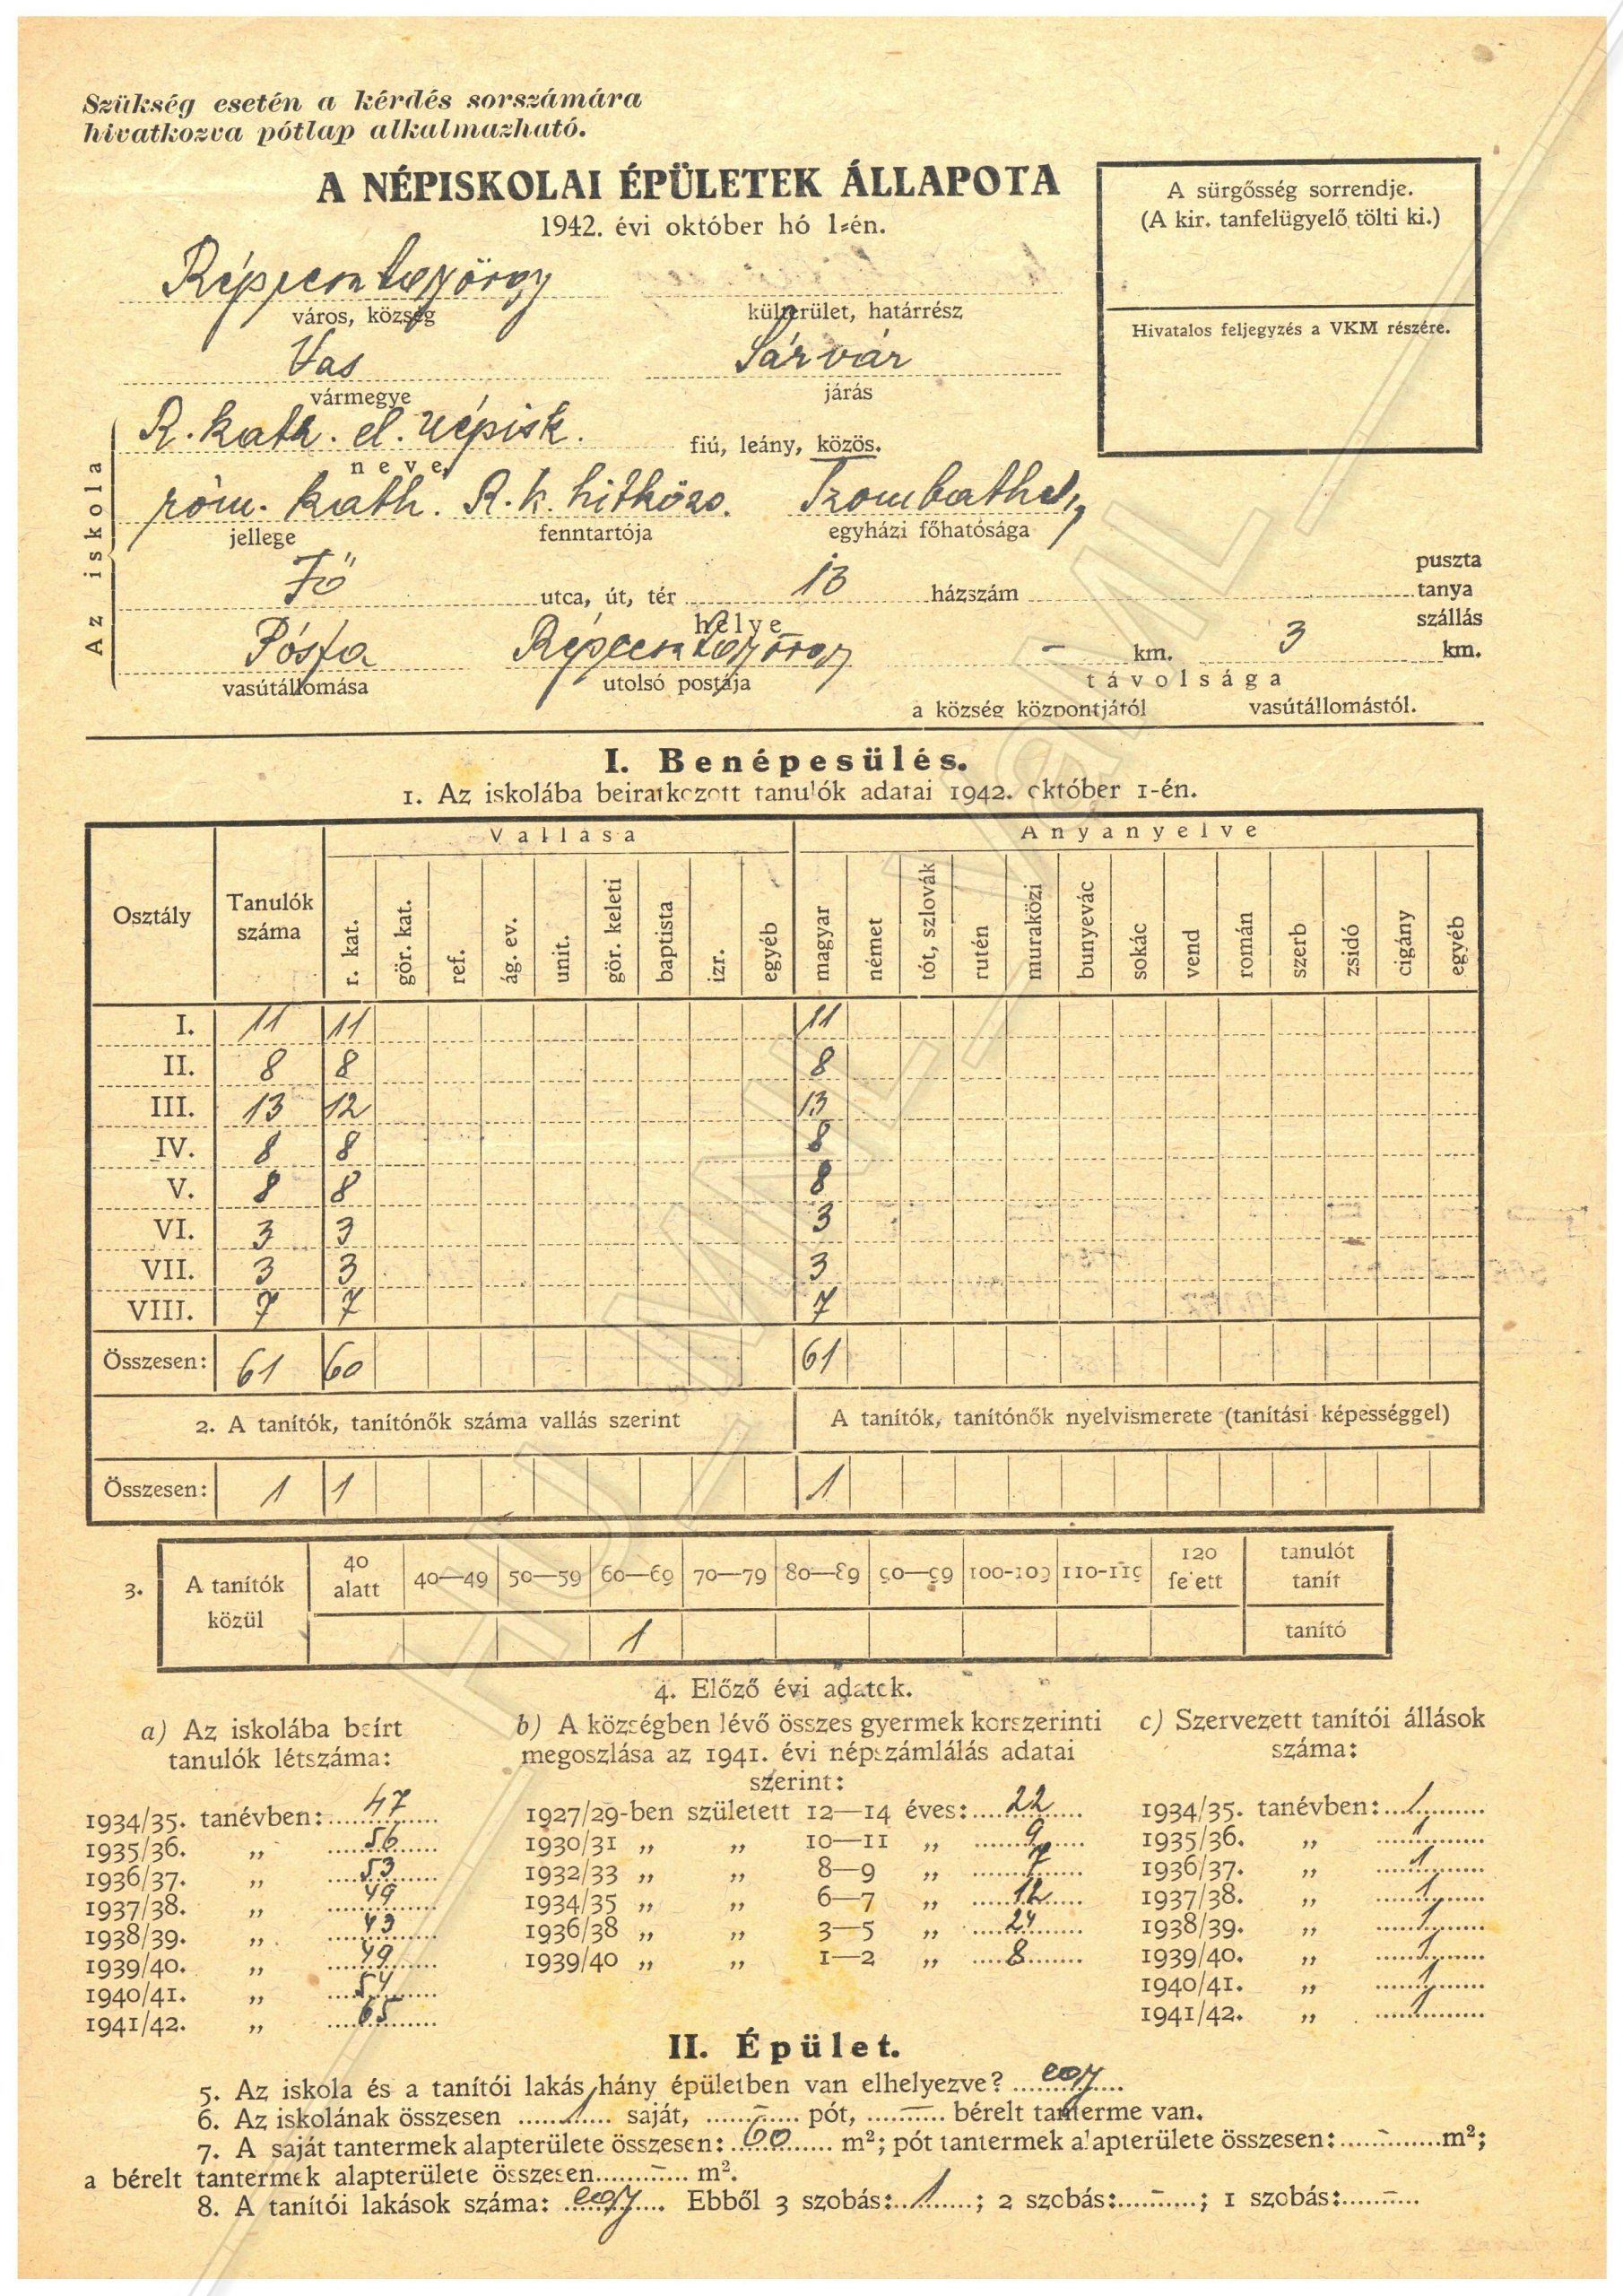 Szükség esetén a kérdés sorszámára
hivatkozva pótlap alkalmazható.
A NÉPISKOLAI ÉPÜLETEK ÁLLAPOTA
1942. évi október hó 1-én.
A sürgősség sorrendje.
(A kir. tanfelügyelő tölti ki.)
Hivatalos feljegyzés a VKM részére.
Répceszentgyörgy
város, község külterület, határrész
Vas Sárvár
vármegye járás
R. kath. el. népisk. fiú, leány, közös.
neve
róm. kath. R. k. hitközs. Szombathely
jellege fenntartója egyházi főhatósága
Az iskola
Fő utca, út, tér 13 házszám puszta tanya szállás
helye
Pósfa Répceszentgyörgy - km. 3 km.
vasútállomása utolsó postája távolsága
a község központjától vasútállomástól.
I. Benépesülés.
1. Az iskolába beiratkozott tanulók adatai 1942. október 1-én.
Vallása Anyanyelve
Osztály Tanulók száma r. kat. gör. kat. ref. ág. ev. unit. gör. keleti baptista izr. egyéb magyar német tót, szlovák rutén muraközi bunyevác sokác vend román szerb zsidó cigány egyéb
I. 11 11 11
II. 8 8 8
III. 13 12 13
IV. 8 8 8
V. 8 8 8
VI. 3 3 3
VII. 3 3 3
VIII. 7 7 7
Összesen: 61 60 61
2. A tanítók, tanítónők száma vallás szerint A tanítók, tanítónők nyelvismerete (tanítási képességgel)
Összesen: 1 1 1
3. A tanítók közül 40 alatt 40—49 50—59 60—69 70—79 80—89 90—99 100-109 110-119 120 felett tanulót tanít
1 tanító
4. Előző évi adatok.
a) Az iskolába beírt tanulók létszáma:
1934/35. tanévben: 47
1935/36. „ 56
1936/37. „ 53
1937/38. „ 49
1938/39. „ 43
1939/40. „ 49
1940/41. „ 54
1941/42. „ 65
b) A községben lévő összes gyermek korszerinti
megoszlása az 1941. évi népszámlálás adatai
szerint:
1927/29-ben született 12—14 éves: 22
1930/31 „ „ 10—11 „ 9
1932/33 „ „ 8—9 „ 7
1934/35 „ „ 6—7 „ 12
1936/38 „ „ 3—5 „ 24
1939/40 „ „ 1—2 „ 8
c) Szervezett tanítói állások
száma:
1934/35. tanévben: 1
1935/36. „ 1
1936/37. „ 1
1937/38. „ 1
1938/39. „ 1
1939/40. „ 1
1940/41. „ 1
1941/42. „ 1
II. Épület.
5. Az iskola és a tanítói lakás hány épületben van elhelyezve? egy
6. Az iskolának összesen 1 saját, - pót, - bérelt tanterme van.
7. A saját tantermek alapterülete összesen: 60 m²; pót tantermek alapterülete összesen: - m²;
a bérelt tantermek alapterülete összesen - m².
8. A tanítói lakások száma: egy. Ebből 3 szobás: 1; 2 szobás: -; 1 szobás: -
HU_MNL_VaML